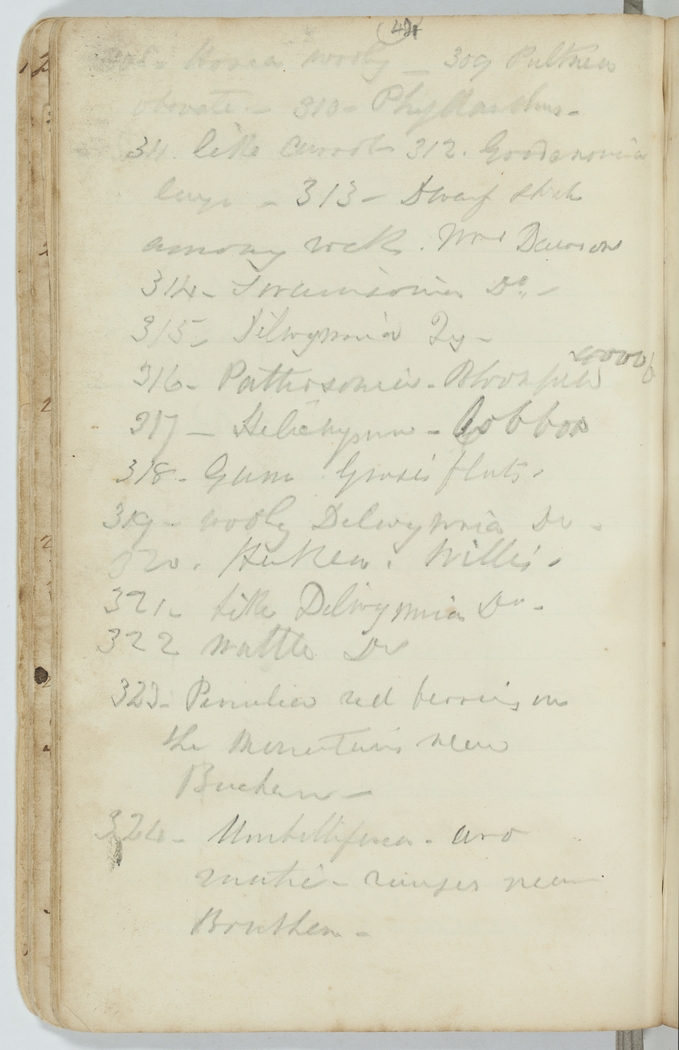 42
308 - Hovea wooly - 309 Pultnea
obovate - 310 - Phyllanthus -
311. like carrot 312. Goodenovia
large - 313 - Dwarf shrub
among rocks. Mrs Dawson
314 - Swainsonia Do -
315 - Dilwynnia
316 - wood
317 - Helichrysum - Cobbon
318 - Gum Grassi flats -
319 - wooly Delwynnia Do -
320. Hakea. Willis -
321 - like Delwynnia Do -
322 wattle Do
323 - Peculiar red berries on
the Mountains near
Buchan -
324 - Umbellifera - aro
matic - ranges near
Bruthen -